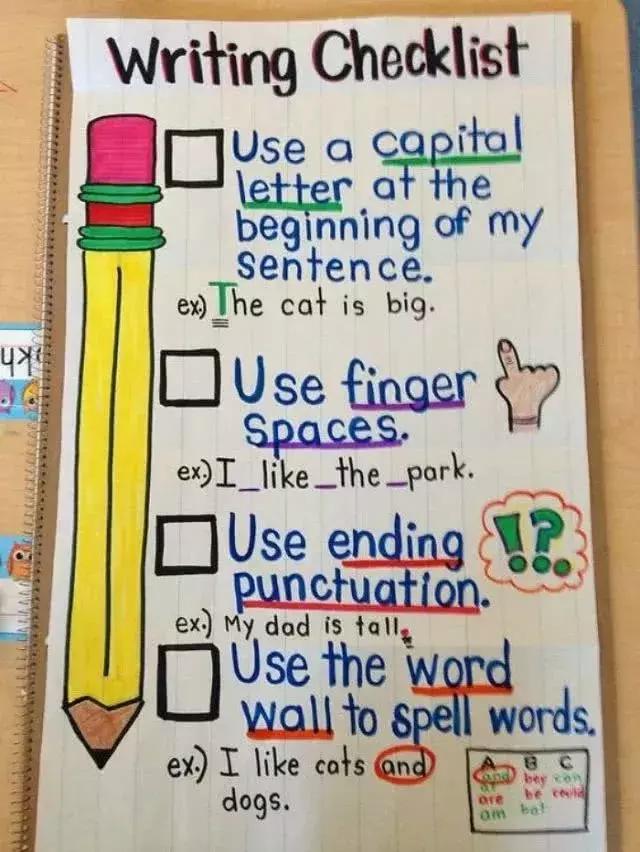 Writing Checklist
Use a capital
letter at the
beginning of my
sentence.
ex.) The cat is big.
Use finger
spaces.
ex.) I_like_the_park.
Use ending
punctuation.
!?.
ex.) My dad is tall.
Use the word
wall to spell words.
ex.) I like cats and
dogs.
A B C
and boy can
at be could
are bat
am